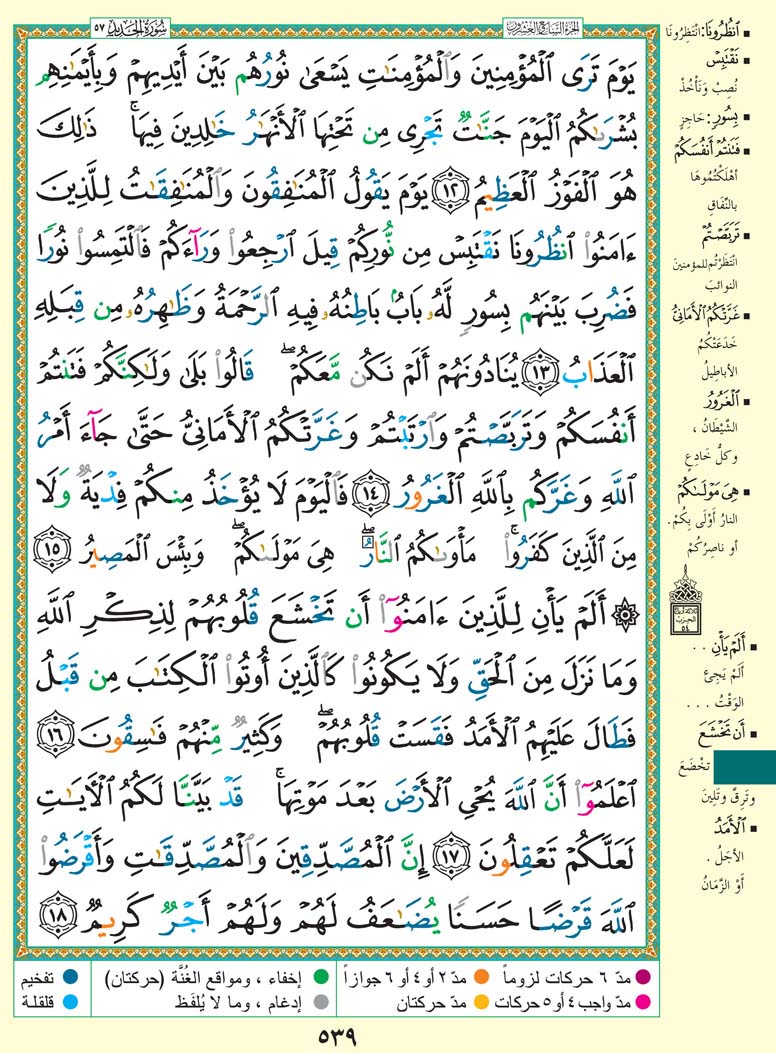 سُورَةُ الحَدِيدِ ٥٧
الجُزْءُ السَّابِعُ وَالعِشْرُون
يَوْمَ تَرَى ٱلْمُؤْمِنِينَ وَٱلْمُؤْمِنَٰتِ يَسْعَىٰ نُورُهُم بَيْنَ أَيْدِيهِمْ وَبِأَيْمَٰنِهِم
بُشْرَىٰكُمُ ٱلْيَوْمَ جَنَّٰتٌ تَجْرِى مِن تَحْتِهَا ٱلْأَنْهَٰرُ خَٰلِدِينَ فِيهَا ۚ ذَٰلِكَ
هُوَ ٱلْفَوْزُ ٱلْعَظِيمُ ﴿١٢﴾ يَوْمَ يَقُولُ ٱلْمُنَٰفِقُونَ وَٱلْمُنَٰفِقَٰتُ لِلَّذِينَ
ءَامَنُوا۟ ٱنظُرُونَا نَقْتَبِسْ مِن نُّورِكُمْ قِيلَ ٱرْجِعُوا۟ وَرَآءَكُمْ فَٱلْتَمِسُوا۟ نُورًا
فَضُرِبَ بَيْنَهُم بِسُورٍ لَّهُۥ بَابٌۢ بَاطِنُهُۥ فِيهِ ٱلرَّحْمَةُ وَظَٰهِرُهُۥ مِن قِبَلِهِ
ٱلْعَذَابُ ﴿١٣﴾ يُنَادُونَهُمْ أَلَمْ نَكُن مَّعَكُمْ ۖ قَالُوا۟ بَلَىٰ وَلَٰكِنَّكُمْ فَتَنتُمْ
أَنفُسَكُمْ وَتَرَبَّصْتُمْ وَٱرْتَبْتُمْ وَغَرَّتْكُمُ ٱلْأَمَانِىُّ حَتَّىٰ جَآءَ أَمْرُ
ٱللَّهِ وَغَرَّكُم بِٱللَّهِ ٱلْغَرُورُ ﴿١٤﴾ فَٱلْيَوْمَ لَا يُؤْخَذُ مِنكُمْ فِدْيَةٌ وَلَا
مِنَ ٱلَّذِينَ كَفَرُوا۟ ۚ مَأْوَىٰكُمُ ٱلنَّارُ ۖ هِىَ مَوْلَىٰكُمْ ۖ وَبِئْسَ ٱلْمَصِيرُ ﴿١٥﴾
۞ أَلَمْ يَأْنِ لِلَّذِينَ ءَامَنُوٓا۟ أَن تَخْشَعَ قُلُوبُهُمْ لِذِكْرِ ٱللَّهِ
وَمَا نَزَلَ مِنَ ٱلْحَقِّ وَلَا يَكُونُوا۟ كَٱلَّذِينَ أُوتُوا۟ ٱلْكِتَٰبَ مِن قَبْلُ
فَطَالَ عَلَيْهِمُ ٱلْأَمَدُ فَقَسَتْ قُلُوبُهُمْ ۖ وَكَثِيرٌ مِّنْهُمْ فَٰسِقُونَ ﴿١٦﴾
ٱعْلَمُوٓا۟ أَنَّ ٱللَّهَ يُحْىِ ٱلْأَرْضَ بَعْدَ مَوْتِهَا ۚ قَدْ بَيَّنَّا لَكُمُ ٱلْـَٔايَٰتِ
لَعَلَّكُمْ تَعْقِلُونَ ﴿١٧﴾ إِنَّ ٱلْمُصَّدِّقِينَ وَٱلْمُصَّدِّقَٰتِ وَأَقْرَضُوا۟
ٱللَّهَ قَرْضًا حَسَنًا يُضَٰعَفُ لَهُمْ وَلَهُمْ أَجْرٌ كَرِيمٌ ﴿١٨﴾
▪ ٱنظُرُونَا: انْتَظِرُونَا
▪ نَقْتَبِسْ
نُصِبْ وَنَأْخُذْ
▪ بِسُورٍ: حَاجِزٍ
▪ فَتَنتُمْ أَنفُسَكُمْ
أهْلَكْتُمُوهَا
بالنِّفَاقِ
▪ تَرَبَّصْتُمْ
انْتَظَرْتُم للمؤمنينَ
النوائبَ
▪ غَرَّتْكُمُ ٱلْأَمَانِىُّ
خَدَعَتْكُمُ
الأباطِيلُ
▪ ٱلْغَرُورُ
الشَّيْطَانُ ،
وكلُّ خَادِعٍ
▪ هِىَ مَوْلَىٰكُمْ
النارُ أَوْلَى بِكُمْ .
أو ناصِرُكُمْ
ثلاثة أرباع
الحزب
٥٤
▪ أَلَمْ يَأْنِ . .
أَلَمْ يَجِئِ
الوَقْتُ . . .
▪ أَن تَخْشَعَ
تَخْضَعَ
وتَرِقَّ وتَلِينَ
▪ ٱلْأَمَدُ
الأجَلُ .
أَوْ الزَّمَانُ
مدّ ٦ حركات لزوماً
مدّ ٢ أو ٤ أو ٦ جوازاً
إخفاء ، ومواقع الغُنَّة (حركتان)
تفخيم
مدّ واجب ٤ أو ٥ حركات
مدّ حركتان
إدغام ، وما لا يُلفَظ
قلقلة
٥٣٩